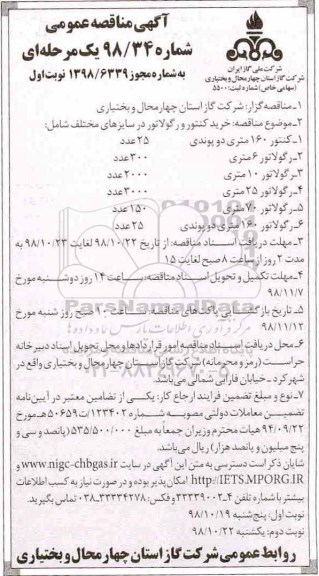 آگهی مناقصه عمومی
شماره ۹۸/۳۴ یک مرحله‌ای
به شماره مجوز ۱۳۹۸/۶۳۳۹ نوبت اول
شرکت ملی گاز ایران
شرکت گاز استان چهارمحال و بختیاری
(سهامی خاص) شماره ثبت: ۵۵۰۰
۱ـ مناقصه‌گزار: شرکت گاز استان چهارمحال و بختیاری
۲ـ موضوع مناقصه: خرید کنتور و رگولاتور در سایزهای مختلف شامل:
۱ـ کنتور ۱۶۰ متری دو پوندی ۲۵ عدد
۲ـ رگولاتور ۶ متری ۳۰۰ عدد
۳ـ رگولاتور ۱۰ متری ۲۰۰۰ عدد
۴ـ رگولاتور ۲۵ متری ۳۰۰۰ عدد
۵ـ رگولاتور ۷۰ متری ۱۵۰ عدد
۶ـ رگولاتور ۱۶۰ متری دو پوندی ۲۵ عدد
۳ـ مهلت دریافت اسناد مناقصه: از تاریخ ۹۸/۱۰/۲۲ لغایت ۹۸/۱۰/۲۳ به
مدت ۲ روز از ساعت ۸ صبح لغایت ۱۵
۴ـ مهلت تکمیل و تحویل اسناد مناقصه، ساعت ۱۴ روز دوشنبه مورخ
۹۸/۱۱/۷
۵ـ تاریخ بازگشایی پاکت‌های مناقصه، ساعت ۱۰ صبح روز شنبه مورخ
۹۸/۱۱/۱۲
۶ـ محل دریافت اسناد مناقصه امور قراردادها و محل تحویل اسناد دبیرخانه
حراست (رمز و محرمانه) شرکت گاز استان چهارمحال و بختیاری واقع در
شهرکرد ـ خیابان فارابی شمالی می‌باشد.
۷ـ نوع و مبلغ تضمین فرایند ارجاع کار: یکی از تضامین معتبر در آیین‌نامه
تضمین معاملات دولتی مصوبه شماره ۱۲۳۴۰۲/ت۵۰۶۵۹هـ مورخ
۹۴/۰۹/۲۲ هیات محترم وزیران جمعاً به مبلغ ۵۳۵/۵۰۰/۰۰۰ (پانصد و سی و
پنج میلیون و پانصد هزار) ریال می‌باشد.
شایان ذکر است دسترسی به متن این آگهی در سایت www.nigc-chbgas.ir و
http://IETS.MPORG.IR امکان‌پذیر بوده و در صورت نیاز به کسب اطلاعات
بیشتر با شماره تلفن ۴ـ۳۳۳۳۹۰۰۲ و فکس: ۳۳۳۳۴۲۷۸-۰۳۸ تماس بگیرید.
نوبت اول: پنج‌شنبه ۹۸/۱۰/۱۹
نوبت دوم: یکشنبه ۹۸/۱۰/۲۲
روابط عمومی شرکت گاز استان چهارمحال و بختیاری
ParsNamadData